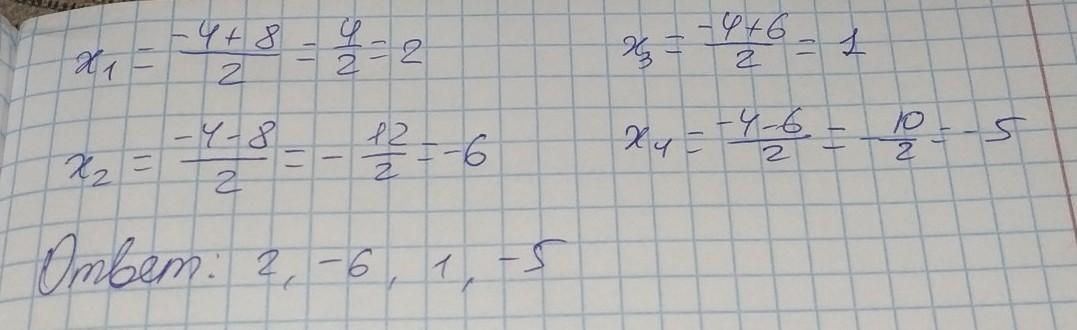 x₁ = (-4+8)/2 = 4/2 = 2
x₃ = (-4+6)/2 = 1
x₂ = (-4-8)/2 = -12/2 = -6
x₄ = (-4-6)/2 = -10/2 = -5
Ответ: 2, -6, 1, -5